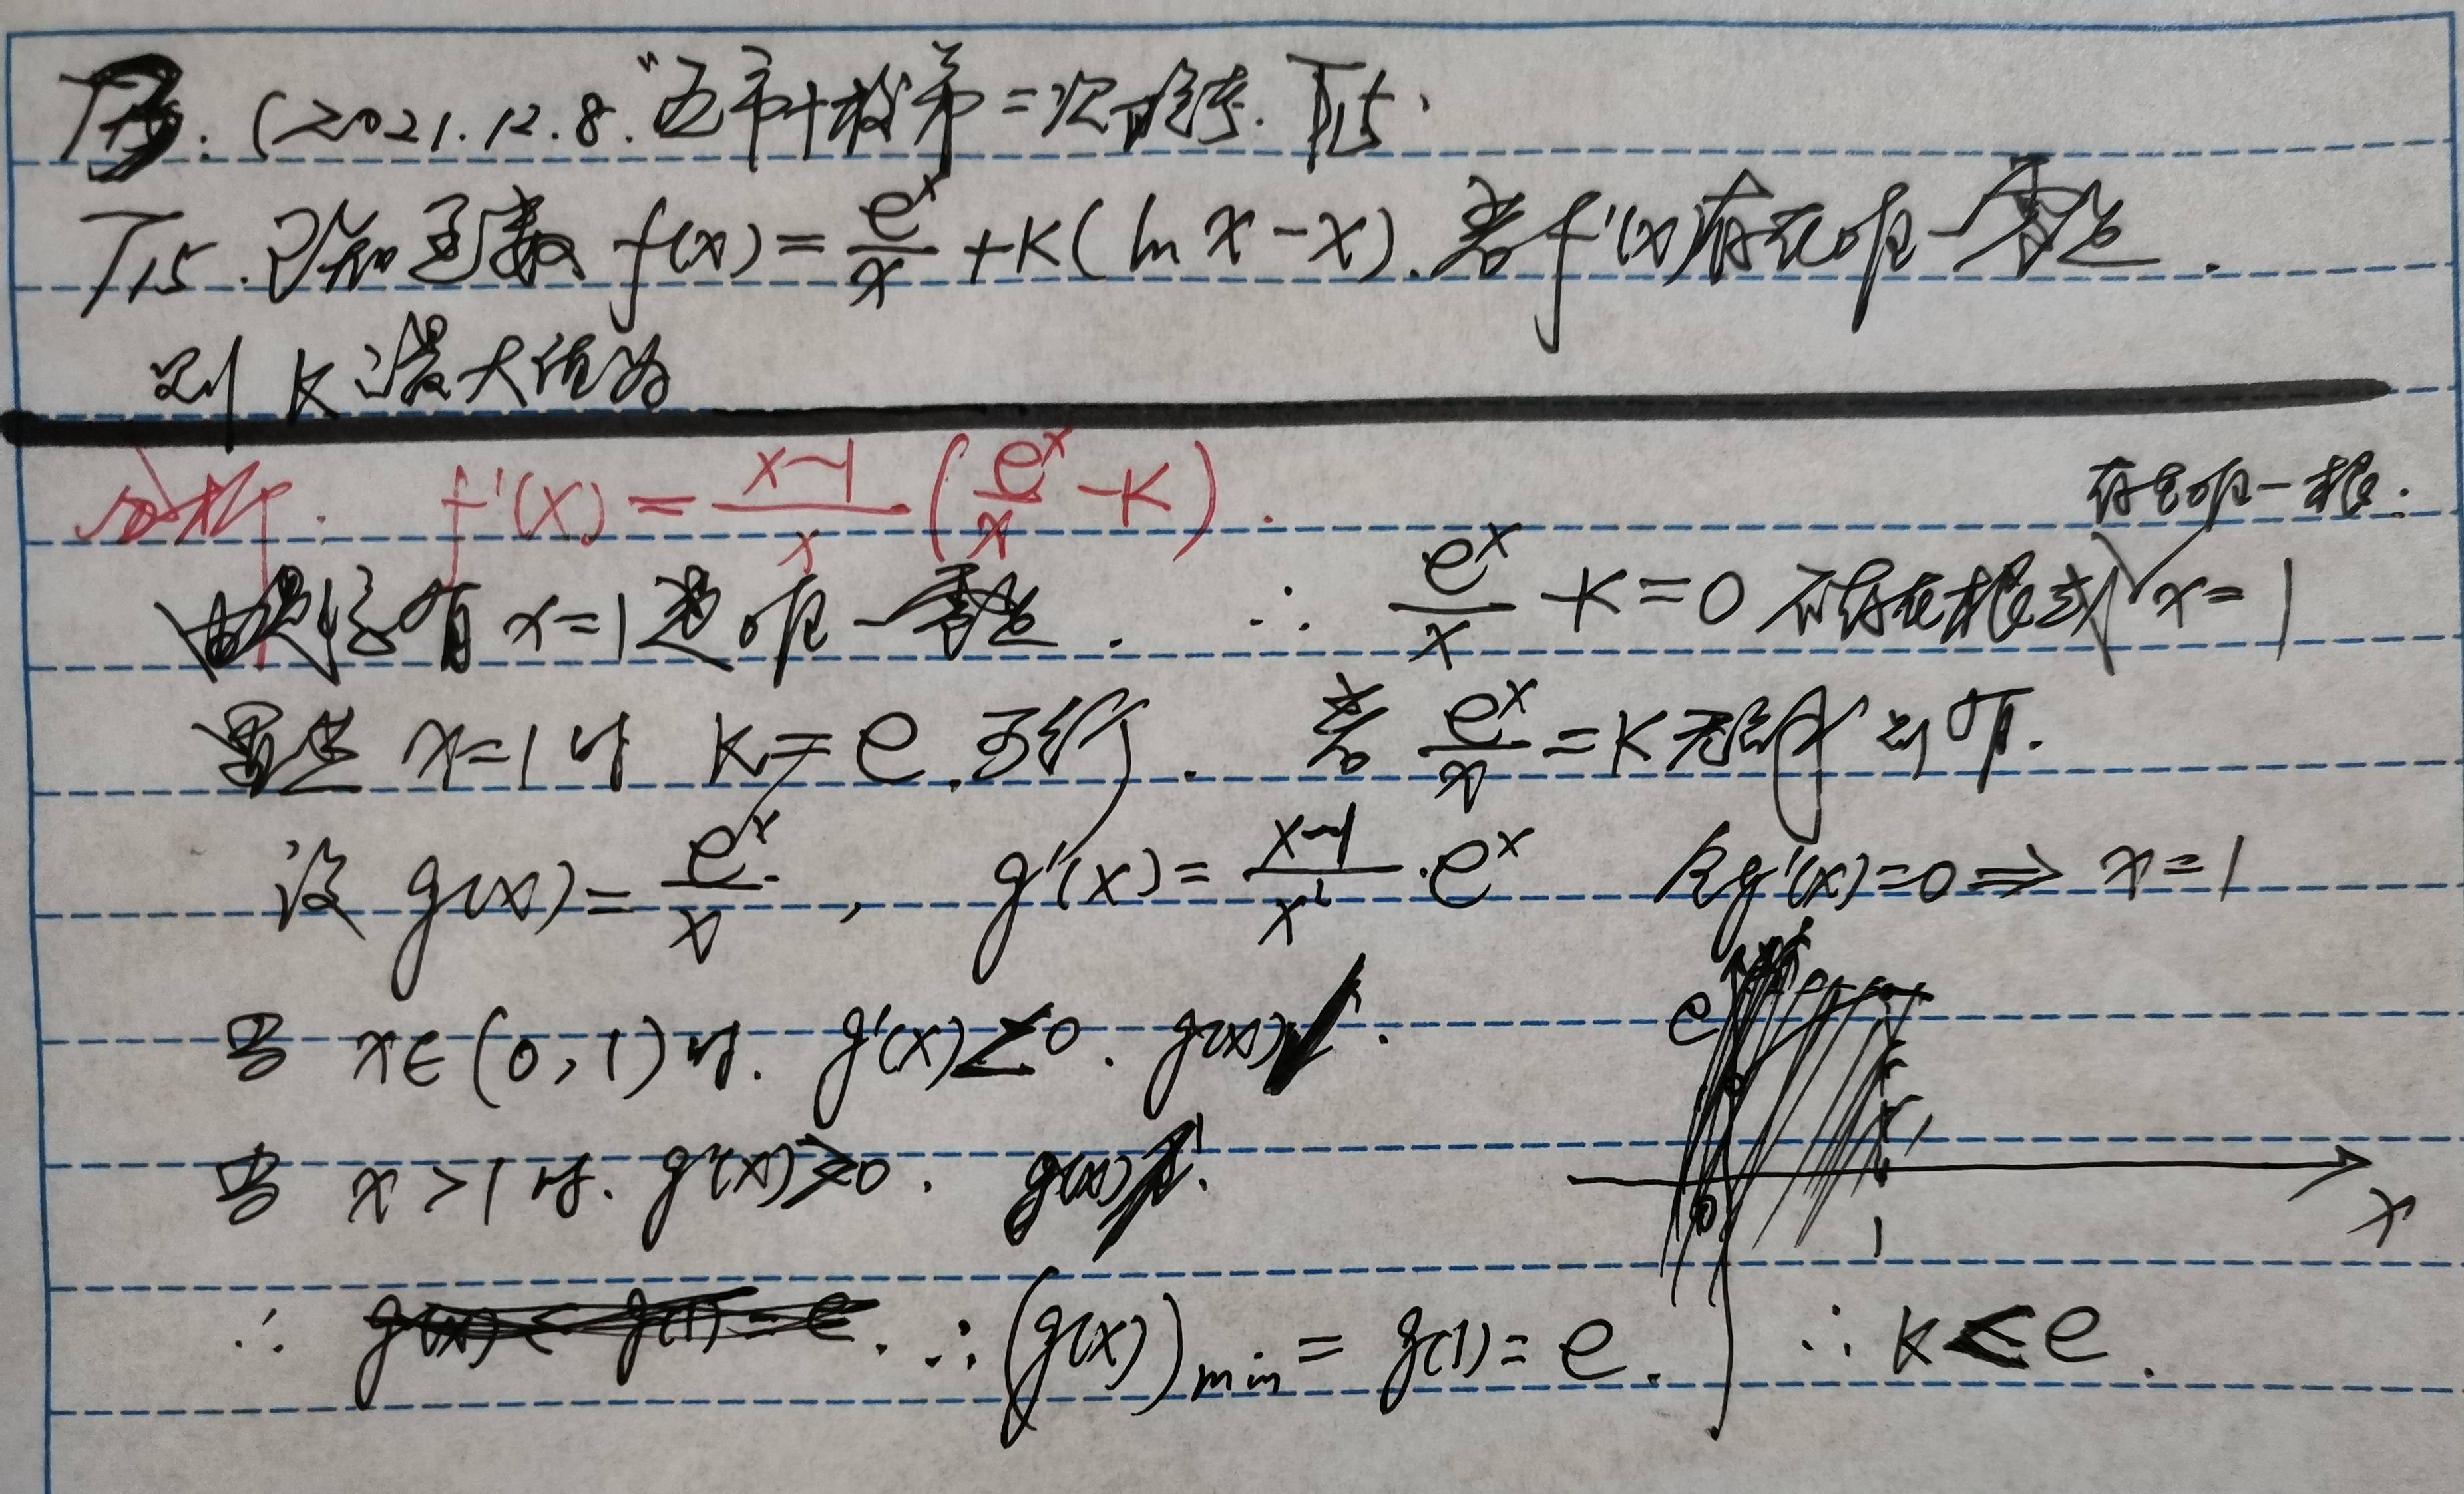 (2021.12.8."五市十校第二次联考.T15.
T15.已知函数 f(x)=e^x/x+K(ln x-x).若f'(x)存在唯一零点.
则 K 最大值为
分析: f'(x)=(x-1)/x (e^x/x-K).
存在唯一根.
由题可知有 x=1是唯一零点. ∴ e^x/x-K=0 不存在根或 x=1
显然 x=1时 K=e.可行. 若 e^x/x=K无解 则可.
设 g(x)=e^x/x, g'(x)=(x-1)/x²·e^x 令g'(x)=0⇒ x=1
当 x∈(0,1)时. g'(x)≤0. g(x)↓.
e
当 x>1时. g'(x)≥0. g(x)↑.
0 1 x
∴ g(x)< g(1)=e. ∴(g(x))min=g(1)=e. ∴K≤e.